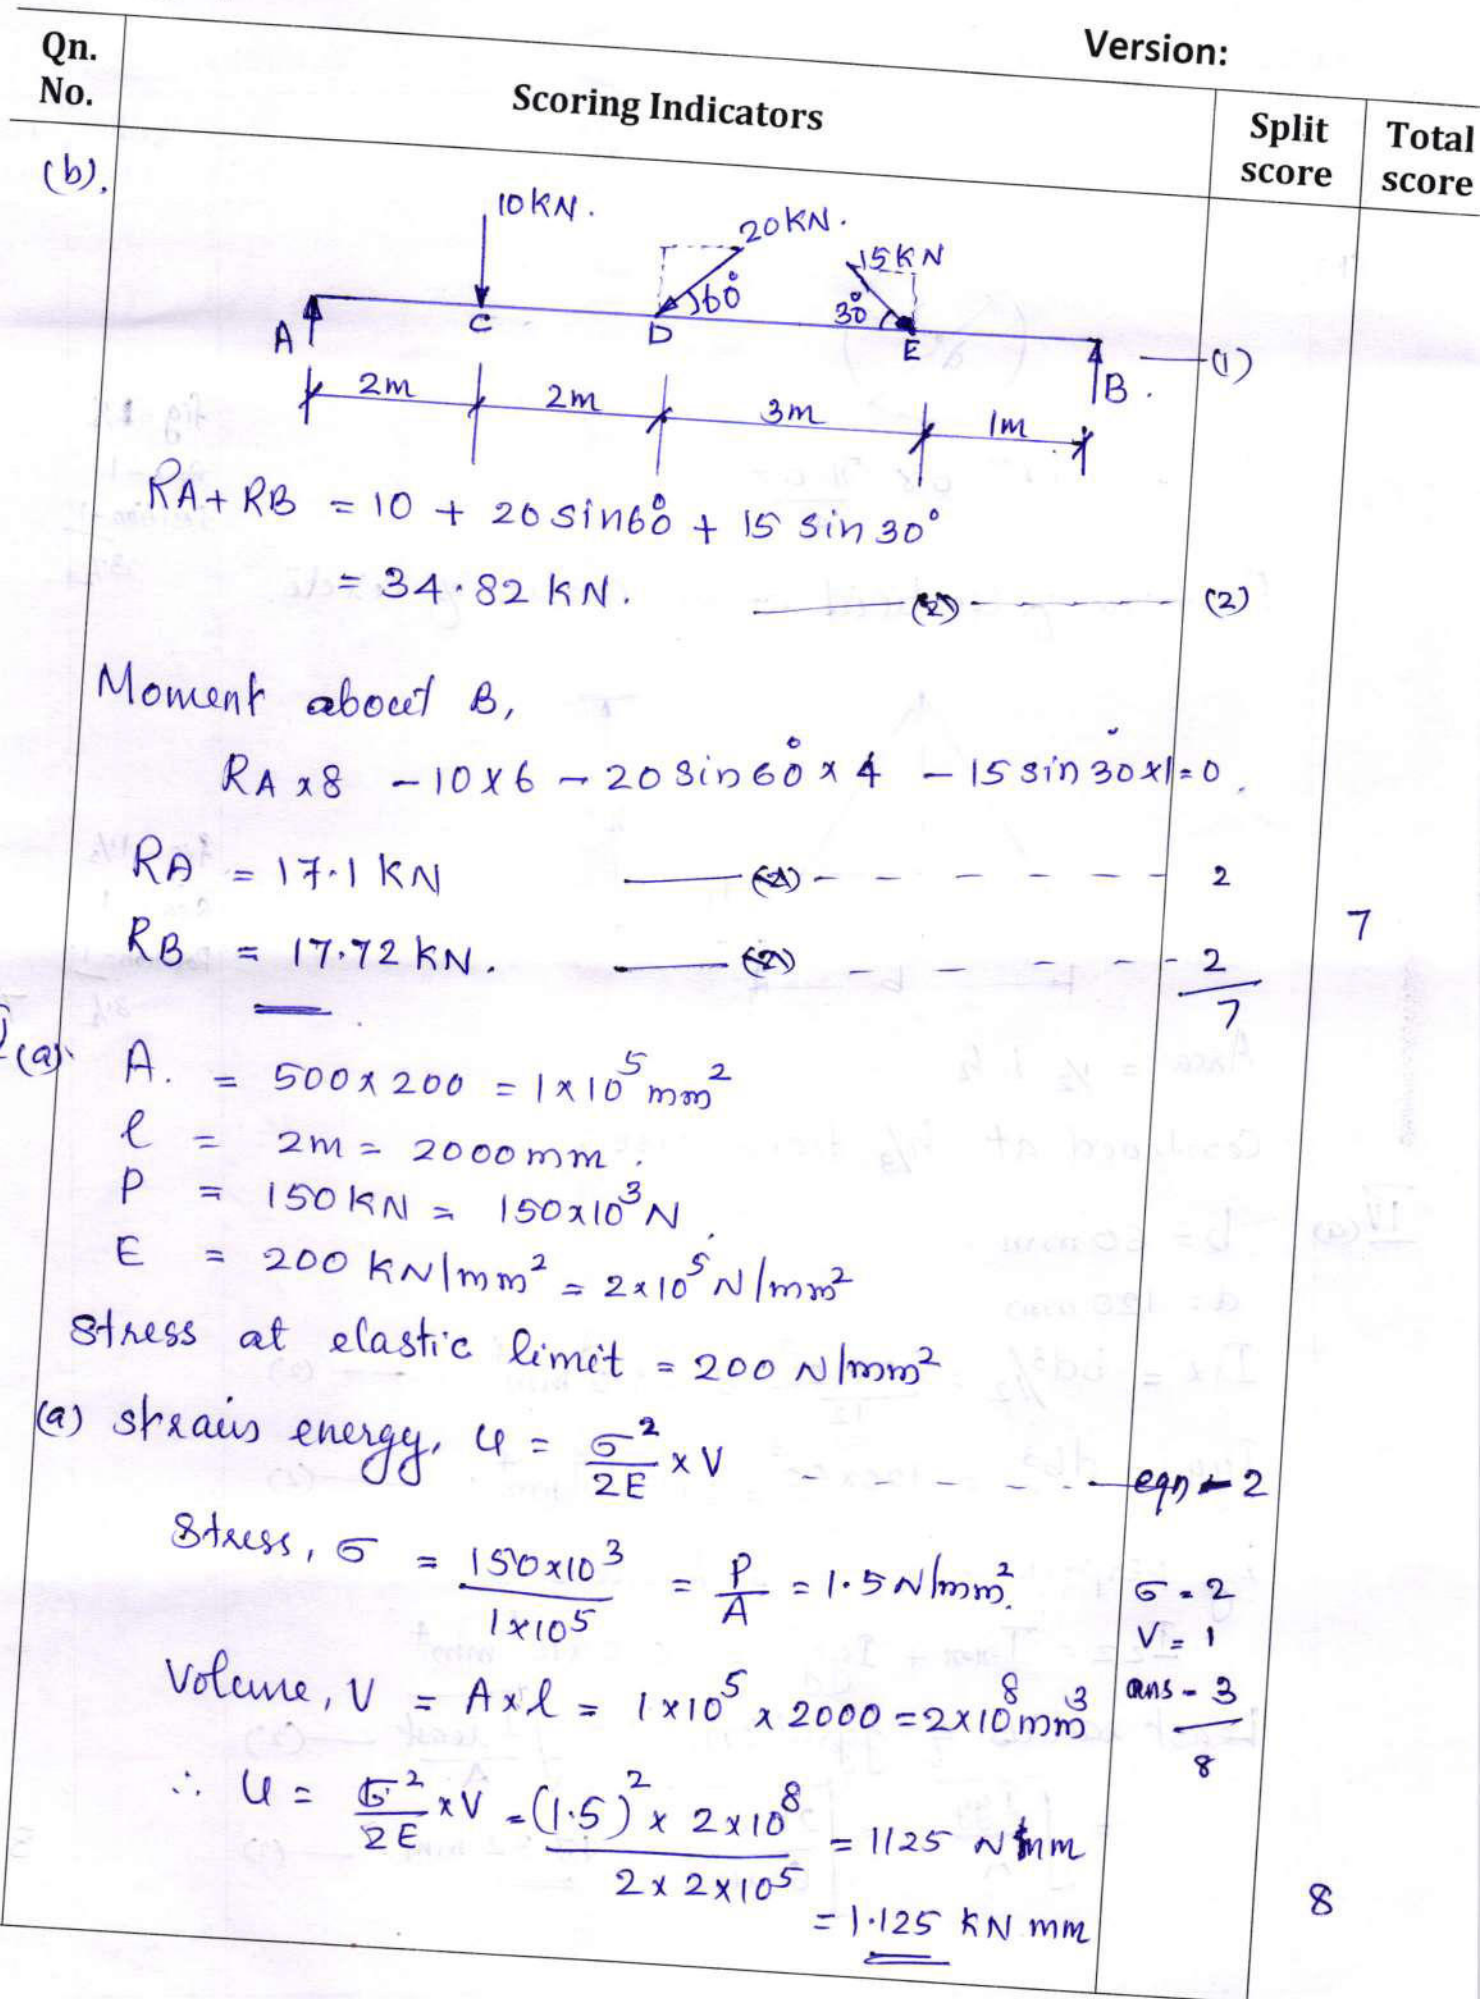 Version:
Qn. No.
Scoring Indicators
Split score
Total score
(b).
10KN.
20KN.
15KN
60°
30°
A
C
D
E
B.
(1)
2m
2m
3m
1m
RA + RB = 10 + 20 sin60° + 15 sin 30°
= 34.82 KN. (2) (2)
Moment about B,
RA x 8 - 10 x 6 - 20 sin 60° x 4 - 15 sin 30° x 1 = 0.
RA = 17.1 KN 2
7
RB = 17.72 KN. (2) 2
7
(a). A. = 500 x 200 = 1 x 10^5 mm^2
l = 2m = 2000 mm.
P = 150 KN = 150 x 10^3 N.
E = 200 KN/mm^2 = 2 x 10^5 N/mm^2
Stress at elastic limit = 200 N/mm^2
(a) strain energy, U = σ^2/2E x V eqn - 2
Stress, σ = 150x10^3/1x10^5 = P/A = 1.5 N/mm^2. σ - 2
V = 1
Volume, V = A x l = 1 x 10^5 x 2000 = 2 x 10^8 mm^3 ans - 3
8
∴ U = σ^2/2E x V = (1.5)^2 x 2 x 10^8/2 x 2 x 10^5 = 1125 N mm
= 1.125 KN mm
8